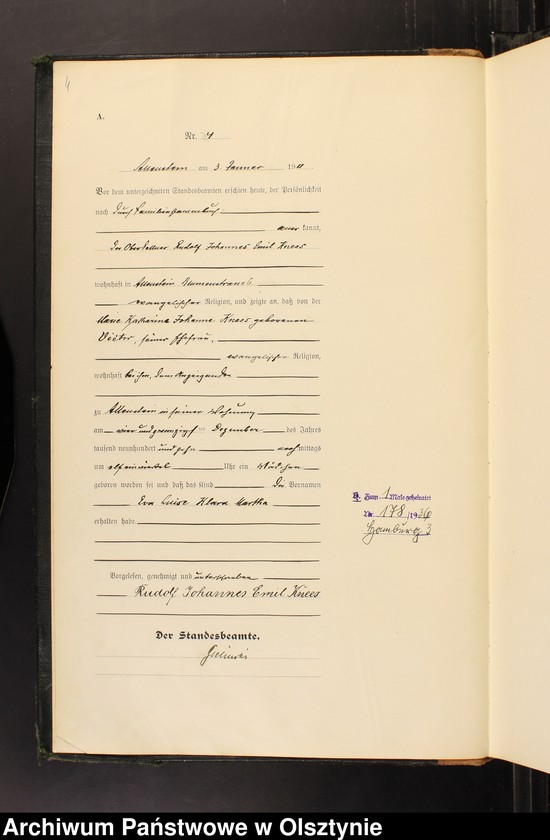 4
A.
Nr. 4
Allenstein am 3. Januar 1911
Vor dem unterzeichneten Standesbeamten erschien heute, der Persönlichkeit
nach durch Familienstammbuch
anerkannt,
der Oberkellner Rudolf Johannes Emil Knees
wohnhaft in Allenstein
evangelischer Religion, und zeigte an, daß von der
Marie Katharina Johanna Knees geborenen
seiner Ehefrau,
evangelischer Religion,
wohnhaft bei ihm, dem Anzeigenden
zu Allenstein in seiner Wohnung
am vier und zwanzigsten Dezember des Jahres
tausend neunhundert und zehn nachmittags
um elf einviertel Uhr ein Mädchen
geboren worden sei und daß das Kind die Vornamen
Eva Luise Klara Martha
erhalten habe.
Vorgelesen, genehmigt und unterschrieben
Rudolf Johannes Emil Knees
Der Standesbeamte.
Zum 1 Male geheiratet
Nr. 178/1936
Hamburg 3
Archiwum Państwowe w Olsztynie